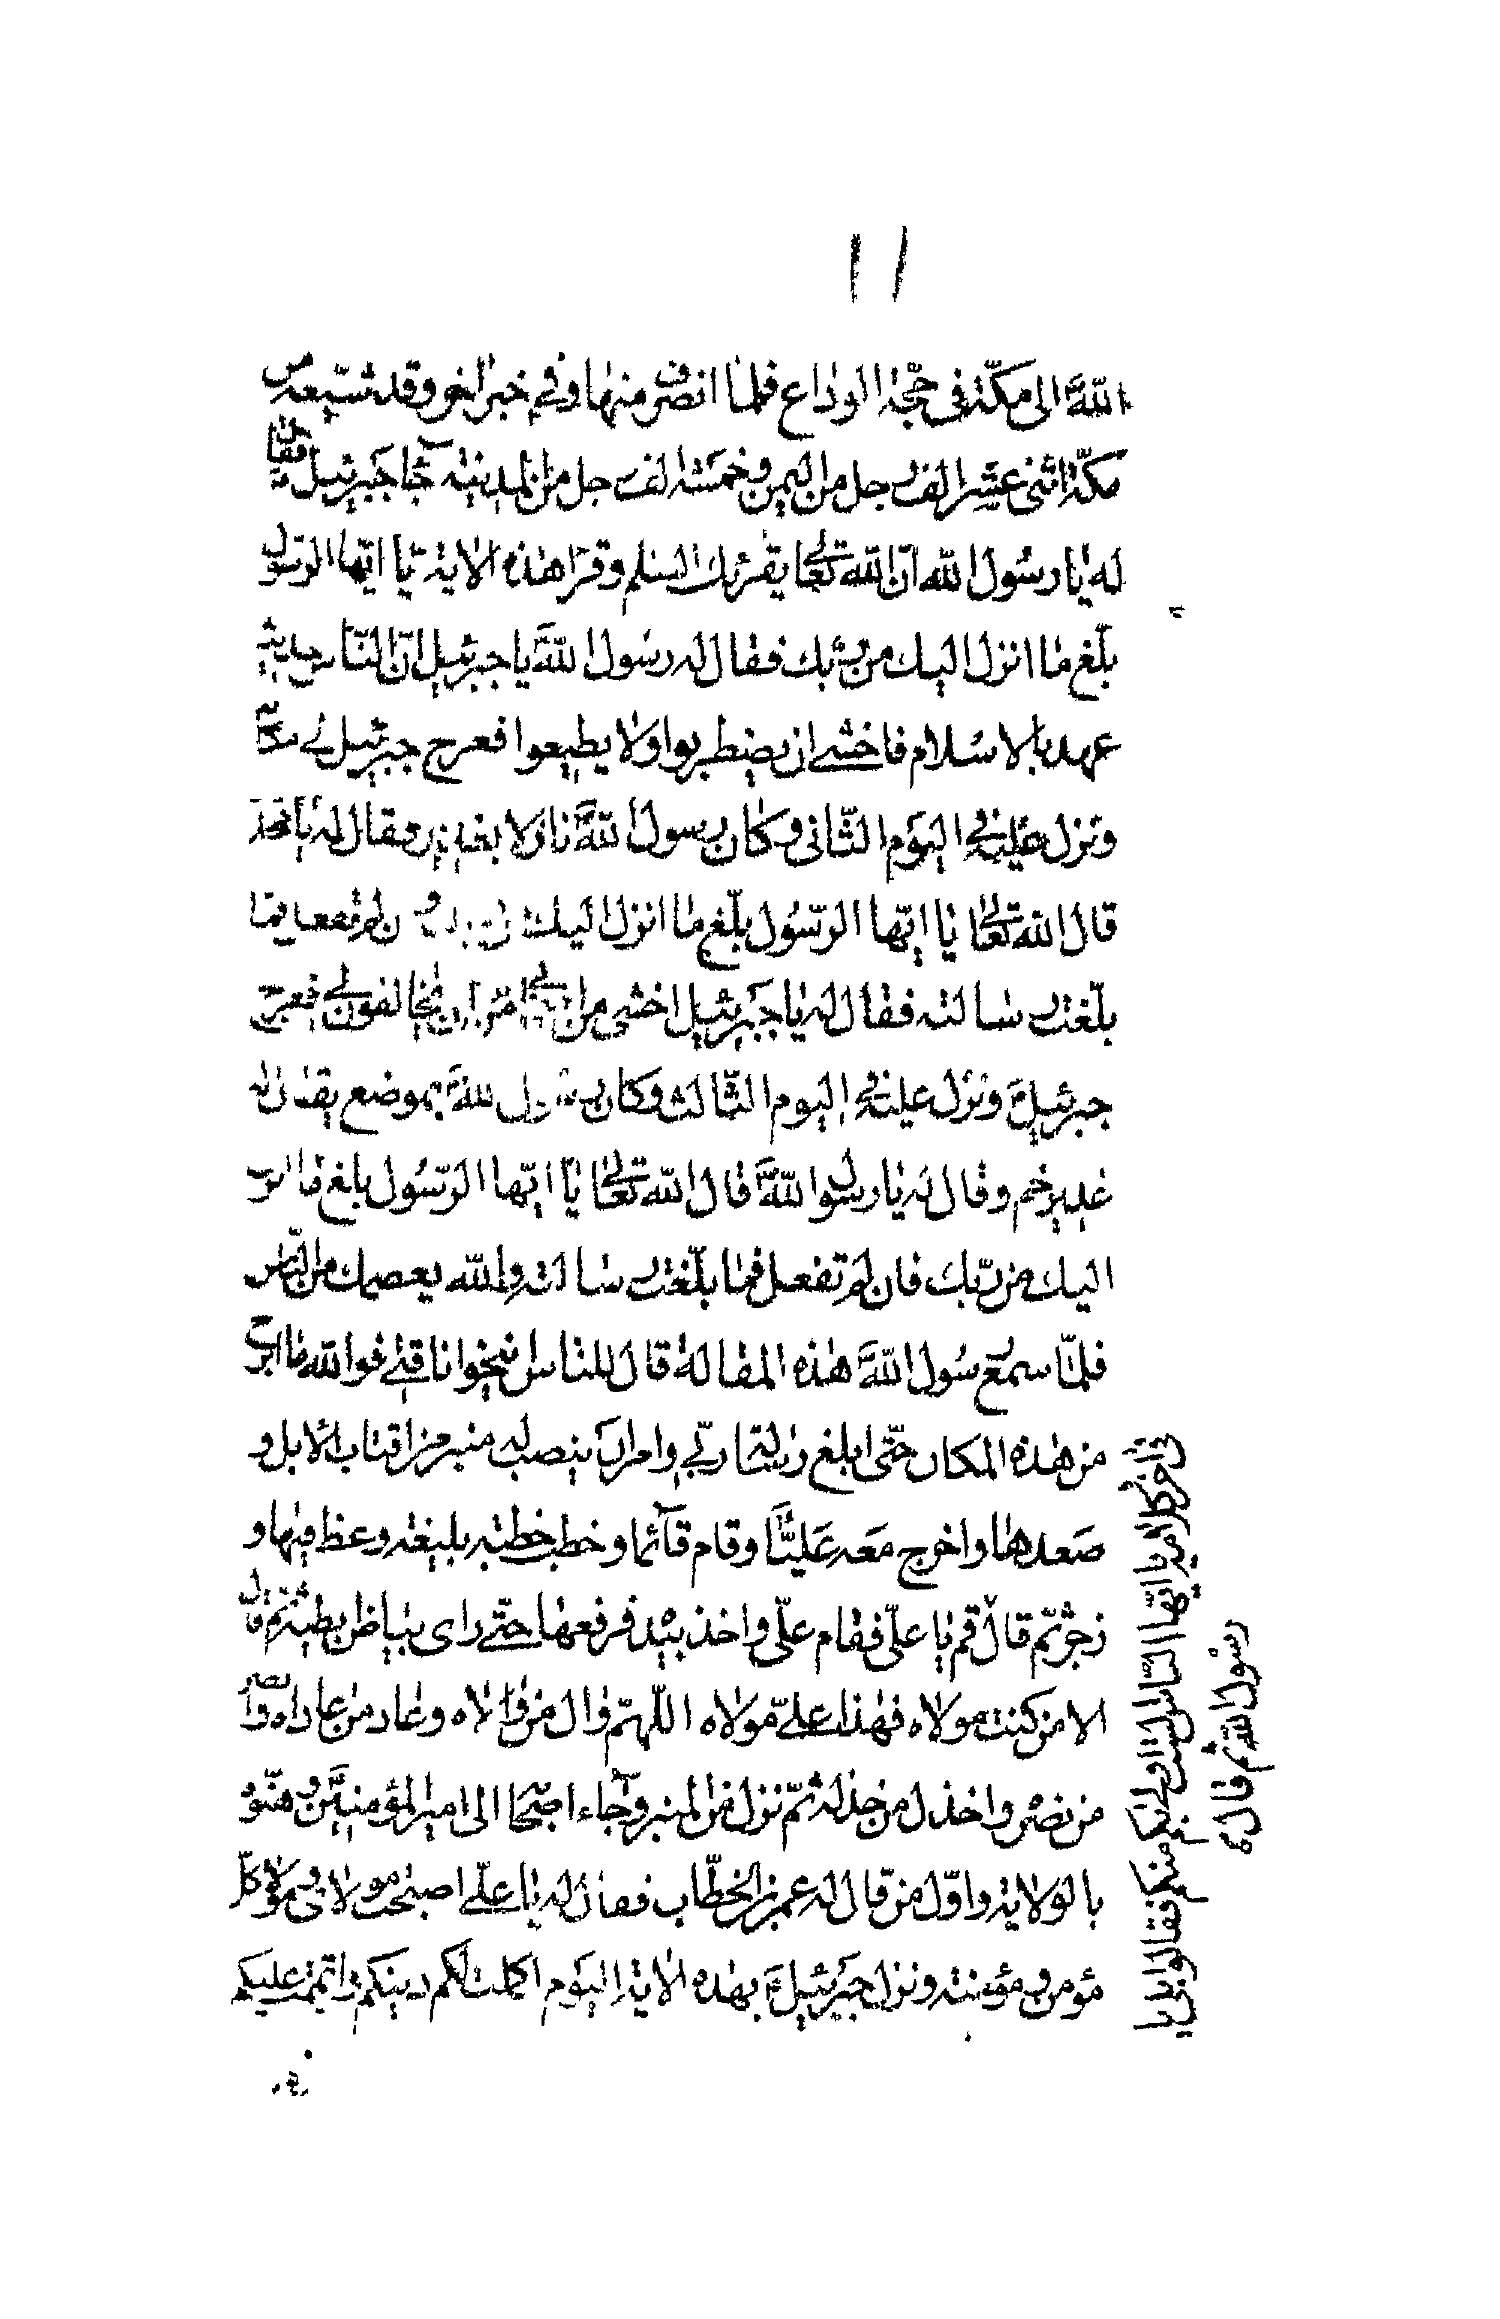 ١١
الله الى مكّة فى حجّة الوداع فلمّا انصرف منها وفى خبر اخر وقد شيّعه من
مكّة اثنى عشر الف رجل من اليمن وخمسة الف رجل من المدينة جاء جبرئيل فقال
له يا رسول الله انّ الله تعالى يقرئك السلم وقرا هذه الاية يا ايّها الرّسول
بلّغ ما انزل اليك من ربّك فقال له رسول الله يا جبرئيل انّ النّاس حديثى
عهد بالاسلام فاخشى ان يضطربوا ولا يطيعوا فعرج جبرئيل الى مكانه
ونزل عليه فى اليوم الثّانى وكان رسول الله نازلا بغدير فقال له يا محمّد
قال الله تعالى يا ايّها الرّسول بلّغ ما انزل اليك من ربك وان لم تفعل فما
بلّغت رسالته فقال له يا جبرئيل اخشى من اصحابى من ان يخالفونى فعرج
جبرئيل ونزل عليه فى اليوم الثّالث وكان رسول الله بموضع يقال له
غدير خم وقال له يا رسول الله قال الله تعالى يا ايّها الرّسول بلغ ما انزل
اليك من ربّك فان لم تفعل فما بلّغت رسالته والله يعصمك من النّاس
فلمّا سمع رسول الله هذه المقالة قال للناس انيخوا ناقتى فوالله ما ابرح
من هذه المكان حتّى ابلغ رسالة ربّى وامر ان ينصب له منبر من اقتاب الابل و
صعدها واخرج معه عليّا وقام قآئما وخطب خطبة بليغة وعظ فيها و
زجر ثمّ قال قم يا علىّ فقام علىّ واخذ بيده فرفعها حتّى راى بياض ابطيه ثمّ قال
الا من كنت مولاه فهذا علىّ مولاه اللّهمّ وال من والاه وعاد من عاداه وانصر
من نصره واخذل من خذله ثمّ نزل من المنبر وجاء اصحابه الى امير المؤمنين وهنّوه
بالولاية واوّل من قال له عمر بن الخطّاب فقال له يا علىّ اصبحت مولاى ومولا كلّ
مؤمن ومؤمنة ونزل جبرئيل بهذه الاية اليوم اكملت لكم دينكم واتممت عليكم
يا ايّها النّاس الست اولى بكم منكم فقالوا بلى يا
رسول الله ثم قال